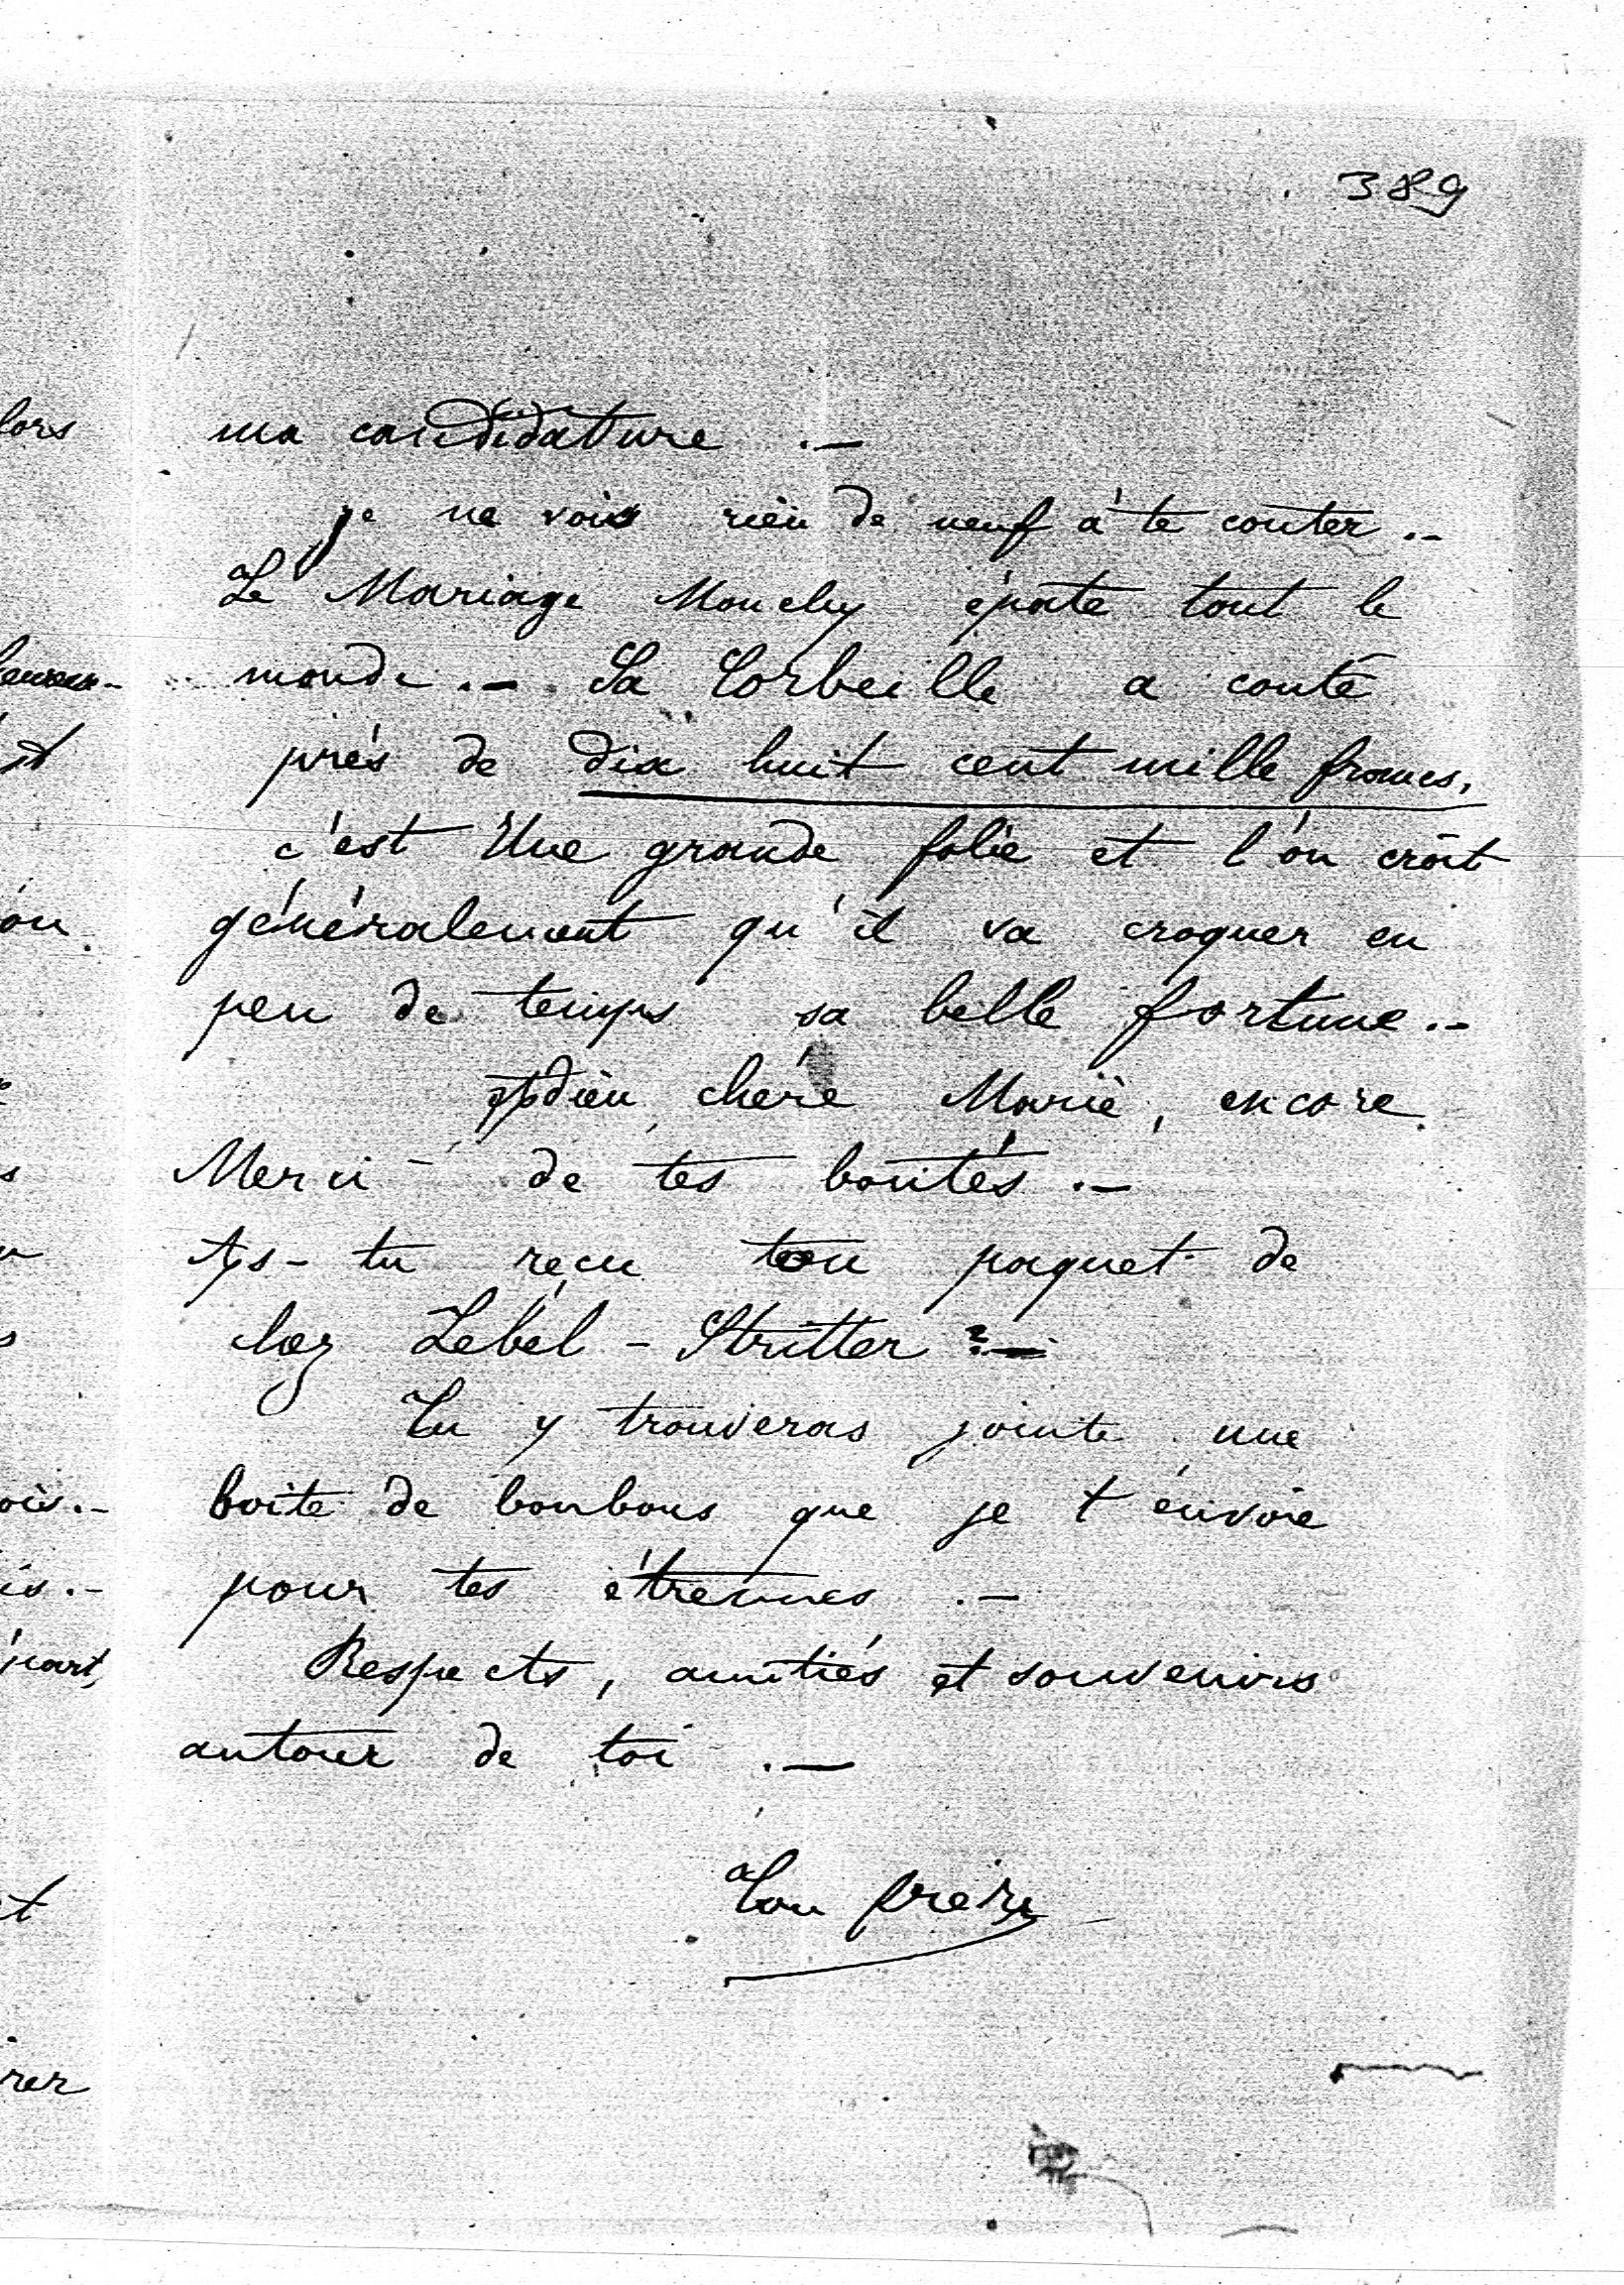 389
ma candidature .—
je ne vois rien de neuf à te conter .—
Le Mariage Mouchy épate tout le
monde .— Sa Corbeille a couté
près de dix huit cent mille francs,
c'est Une grande folie et l'on croit
généralement qu'il va croquer en
peu de temps sa belle fortune .—
Adieu, chère Marie, encore
Merci de tes bontés .—
As-tu reçu ton paquet de
chez Lebel-Stritter ? —
Tu y trouveras jointe une
boite de bonbons que je t'envoie
pour tes étrennes .—
Respects, amitiés et souvenirs
autour de toi .—
Ton frère